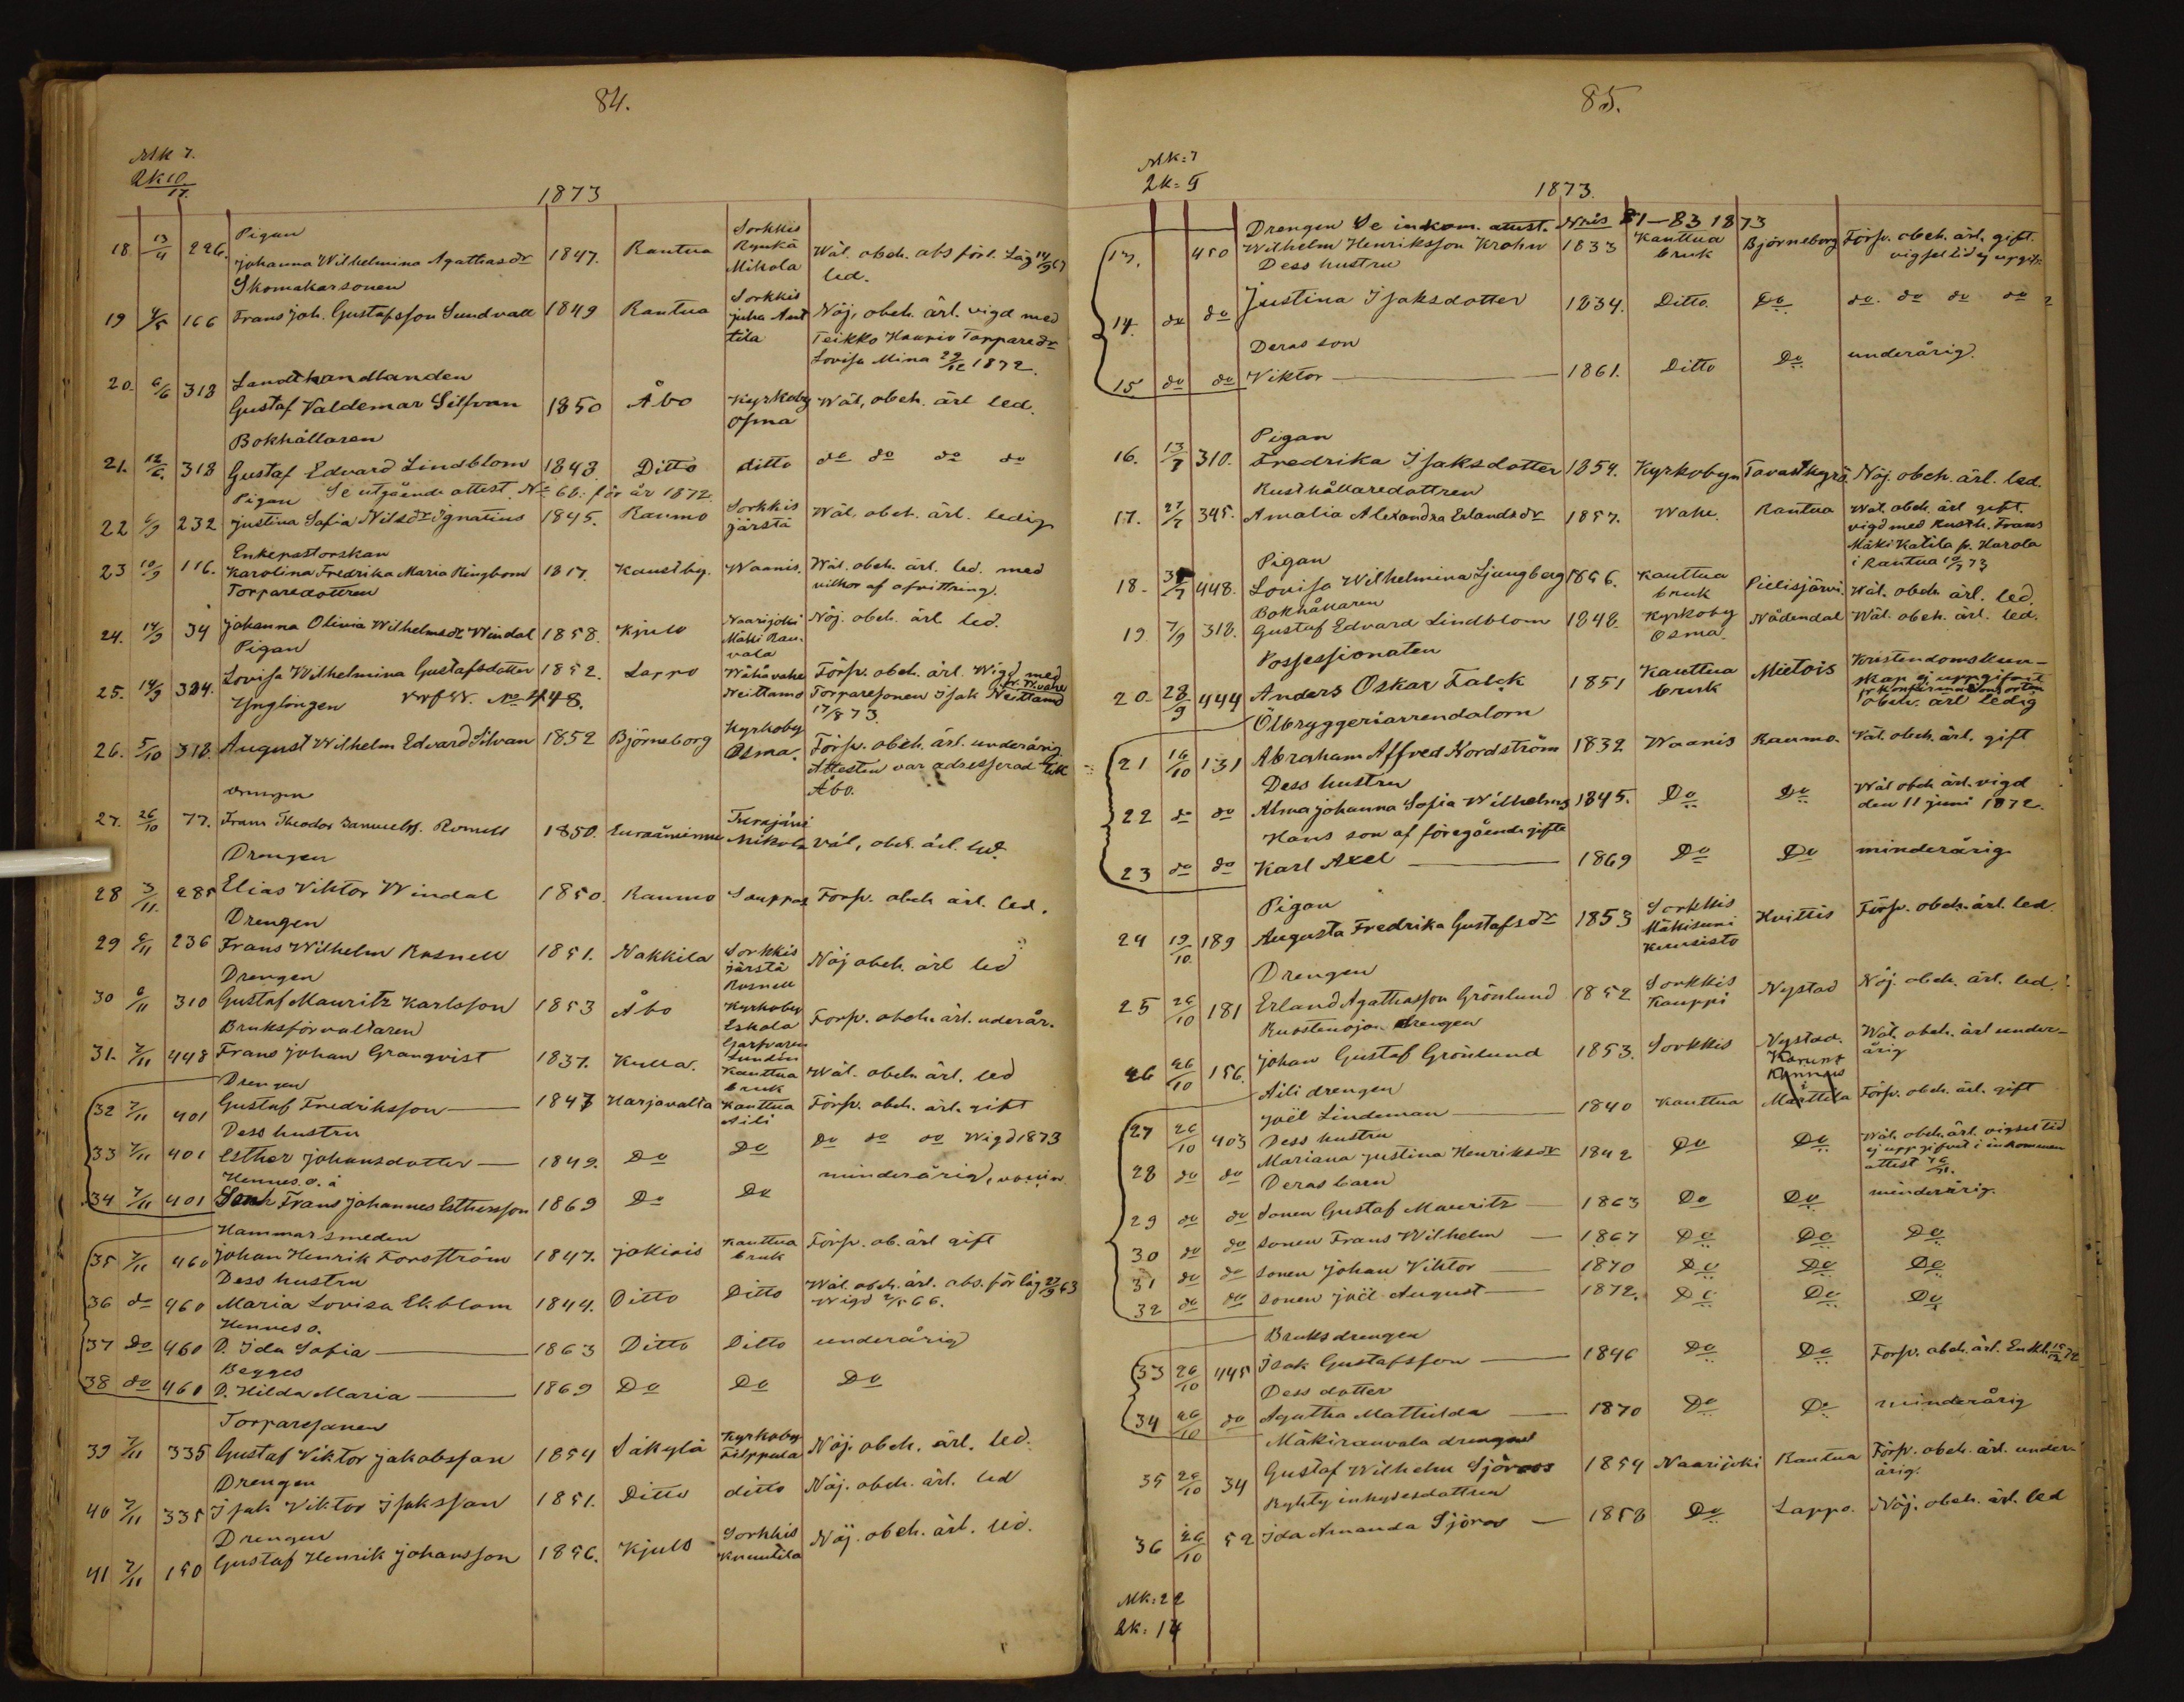 84.
Mk 7.
Qk 10
17.
1873
Pigan
18 13/4 226. Johanna Wilhelmina Agathasdr 1847. Rantua Sorkkis Rynkä Mikola Wäl. obeh. abs förl. Läg 14/9 67 led.
Skomakarsonen
19 4/5 166 Frans Joh. Gustafsson Sundvall 1849 Rantua Sorkkis Juha Anttila Nöj. obeh. ärl. vigd med
Teikko Haapio Torparedr
Lovisa Mina 29/12 1872.
Landthandlanden
20. 6/6 318 Gustaf Valdemar Silfvan 1850 Åbo Kyrkoby Osma Wäl, obeh. ärl led.
Bokhållaren
21. 12/6. 318 Gustaf Edvard Lindblom 1848 Ditto ditto do do do do
Pigan Se utgående attest No 66: för år 1872.
22 6/9 232 Justina Sofia Nilsdr Ignatius 1845. Raumo Sorkkis järstä Wäl. obeh. ärl. ledig
Enkepastorskan
23 10/9 116. Karolina Fredrika Maria Ringbom 1817. Kaustby. Waanis. Wäl. obeh. ärl. led. med
vilkor af afvittring.
Torparedottren
24. 14/9 34 Johanna Olivia Wilhelmsdr Windal 1858. Kjulo Naarijoki Mäki Rauvala Nöj. obeh. ärl led.
Pigan
25. 14/9 324. Lovisa Wilhelmina Gustafsdotter 1852. Lappo Wähävahe Neittamo Förfv. obeh. ärl. Wigd med
Torparesonen Isak Neittamo fr. W.vahe
17/8 73.
Ynglingen No 448.
26. 5/10 318. August Wilhelm Edvard Silvan 1852 Björneborg Kyrkoby Osma. Förfv. obeh. ärl. underårig
Attesten var adresserad till
Åbo.
Drengen
27. 26/10 77. Frans Theodor Samuelss. Romell 1850. Euraåminne Turajärvi Mikola Väl, obeh. ärl. led.
Drengen
28 3/11. 285 Elias Viktor Windal 1850. Raumo Sauppas Förfv. obeh ärl. led.
Drengen
29 6/11 236 Frans Wilhelm Rosnell 1851. Nakkila Sorkkis järstä Rosnell Nöj obeh. ärl led
Drengen
30 6/11 310 Gustaf Mauritz Karlsson 1853 Åbo Kyrkoby Eskola Garfvaren Lundén Förfv. obeh. ärl. underår.
Bruksförvaltaren
31. 7/11 448 Frans Johan Granqvist 1837. Kulla. Kauttua bruk Wäl. obeh. ärl. led
Drengen
32 7/11 401 Gustaf Fredriksson 1847 Harjavalta Kauttua Aili Förfv. obeh. ärl. gift
Dess hustru
33 7/11 401 Esther Johansdotter 1849. Do Do Do do do Wigd 1873
Hennes o. ä
34 7/11 401 Son Frans Johannes Esthersson 1869 Do Do minderårig, vaccin.
Hammarsmeden
35 7/11 460 Johan Henrik Forsström 1847. Jokiois Kauttua bruk Förfv. ob. ärl gift
Dess hustru
36 do 460 Maria Lovisa Ekblom 1844. Ditto Ditto Wäl. obeh. ärl. abs. för läg 27/9 63
Wigd 2/5 66.
Hennes o.
37 Do 460 D. Ida Sofia 1863 Ditto Ditto underårig
Begges
38 do 460 D. Hilda Maria 1869 Do Do Do
Torparesonen
39 7/11 335 Gustaf Viktor Jakobsson 1854 Säkylä Kyrkoby Filppula Nöj. obeh. ärl. led.
Drengen
40 7/11 335 Isak Viktor Isaksson 1851. Ditto ditto Nöj. obeh. ärl. led
Drengen
41 7/11 150 Gustaf Henrik Johansson 1856. Kjulo Sorkkis Knuutila Nöj. obeh. ärl. led.
85.
Mk: 7
Qk: 5
1873.
Drengen Se inkom. attest. N:ris 81–83 1873
13. 450 Wilhelm Henriksson Krohn 1833 Kauttua bruk Björneborg Förfv. obeh. ärl. gift.
vigseltid ej uppgifv.
Dess hustru
14. do do Justina Isaksdotter 1834. Ditto. Do do. do do do
Deras son
15 do do Viktor 1861. Ditto Do underårig.
Pigan
16. 13/7 310. Fredrika Isaksdotter 1854. Kyrkobyn Tavastkyrö Nöj. obeh. ärl. led.
Rusthållaredottren
17. 27/7 345. Amalia Alexandra Erlandsdr 1857. Wahe. Rantua Wäl. obeh. ärl gift.
vigd med Rusth. Frans
Mäki Katila fr. Harola
i Rantua 10/7 73
Pigan
18. 448. Lovisa Wilhelmina Ljungberg 1856. Kauttua bruk Pielisjärvi. Wäl. obeh ärl. led.
Bokhållaren
19 7/9 318. Gustaf Edvard Lindblom 1848. Kyrkoby Osma. Nådendal Wäl. obeh. ärl. led.
Possessionaten
20. 28/9 444 Anders Oskar Falck 1851 Kauttua bruk Mietois Kristendomskun-
skap ej uppgifvit
fr konfirmationsorten
obeh. ärl ledig
Ölbryggeriarrendatorn
21 16/10 131 Abraham Alfred Nordström 1832 Waanis Raumo. Väl. obeh. ärl. gift
Dess hustru
22 do do Alma Johanna Sofia Wilhelms 1845. Do Do Wäl obeh ärl. vigd
den 11 juni 1872.
Hans son af föregående gifte
23 do do Karl Axel 1869 Do Do minderårig
Pigan
24 19/10 189 Augusta Fredrika Gustafsdr 1853 Sorkkis Mäkisuni Kuusisto Hvittis Förfv. obeh. ärl. led
Drengen
25 26/10 181 Erland Agathasson Grönlund 1852 Sorkkis Kauppi Nystad Nöj. obeh. ärl. led.
Ruostenoja drengen
26 26/10 156. Johan Gustaf Grönlund 1853. Sorkkis Nystad. Wäl. obeh. ärl under-
årig
Aili drengen
27 26/10 403 Joël Lindeman 1840 Kauttua Marttila Förfv. obeh. ärl. gift
Dess hustru
28 do do Mariana Justina Henriksdr 1842 Do Do Wäl. obeh. ärl. vigsel tid
ej uppgifvit i inkommen
attest
Deras barn
29 do do Sonen Gustaf Mauritz 1863 Do Do minderårig.
30 do do sonen Frans Wilhelm 1867 Do Do Do
31 do do sonen Johan Viktor 1870 Do Do Do
32 do do sonen Joël August 1872. Do Do Do
Bruksdrengen
33 26/10 445 Isak Gustafsson 1846 Do Do Förfv. obeh. ärl. Enkl. 15/12 72
Dess dotter
34 26/10 do Agatha Mathilda 1870 Do Do minderårig
Mäkirauvala drengen
35 26/10 34 Gustaf Wilhelm Sjöroos 1854 Naarijoki Rantua Förfv. obeh. ärl. under-
årig.
Kyhty inhysesdottren
36 26/10 52 Ida Amanda Sjöros 1858 Do Lappo. Nöj. obeh. ärl. led
Mk: 22
Qk: 14